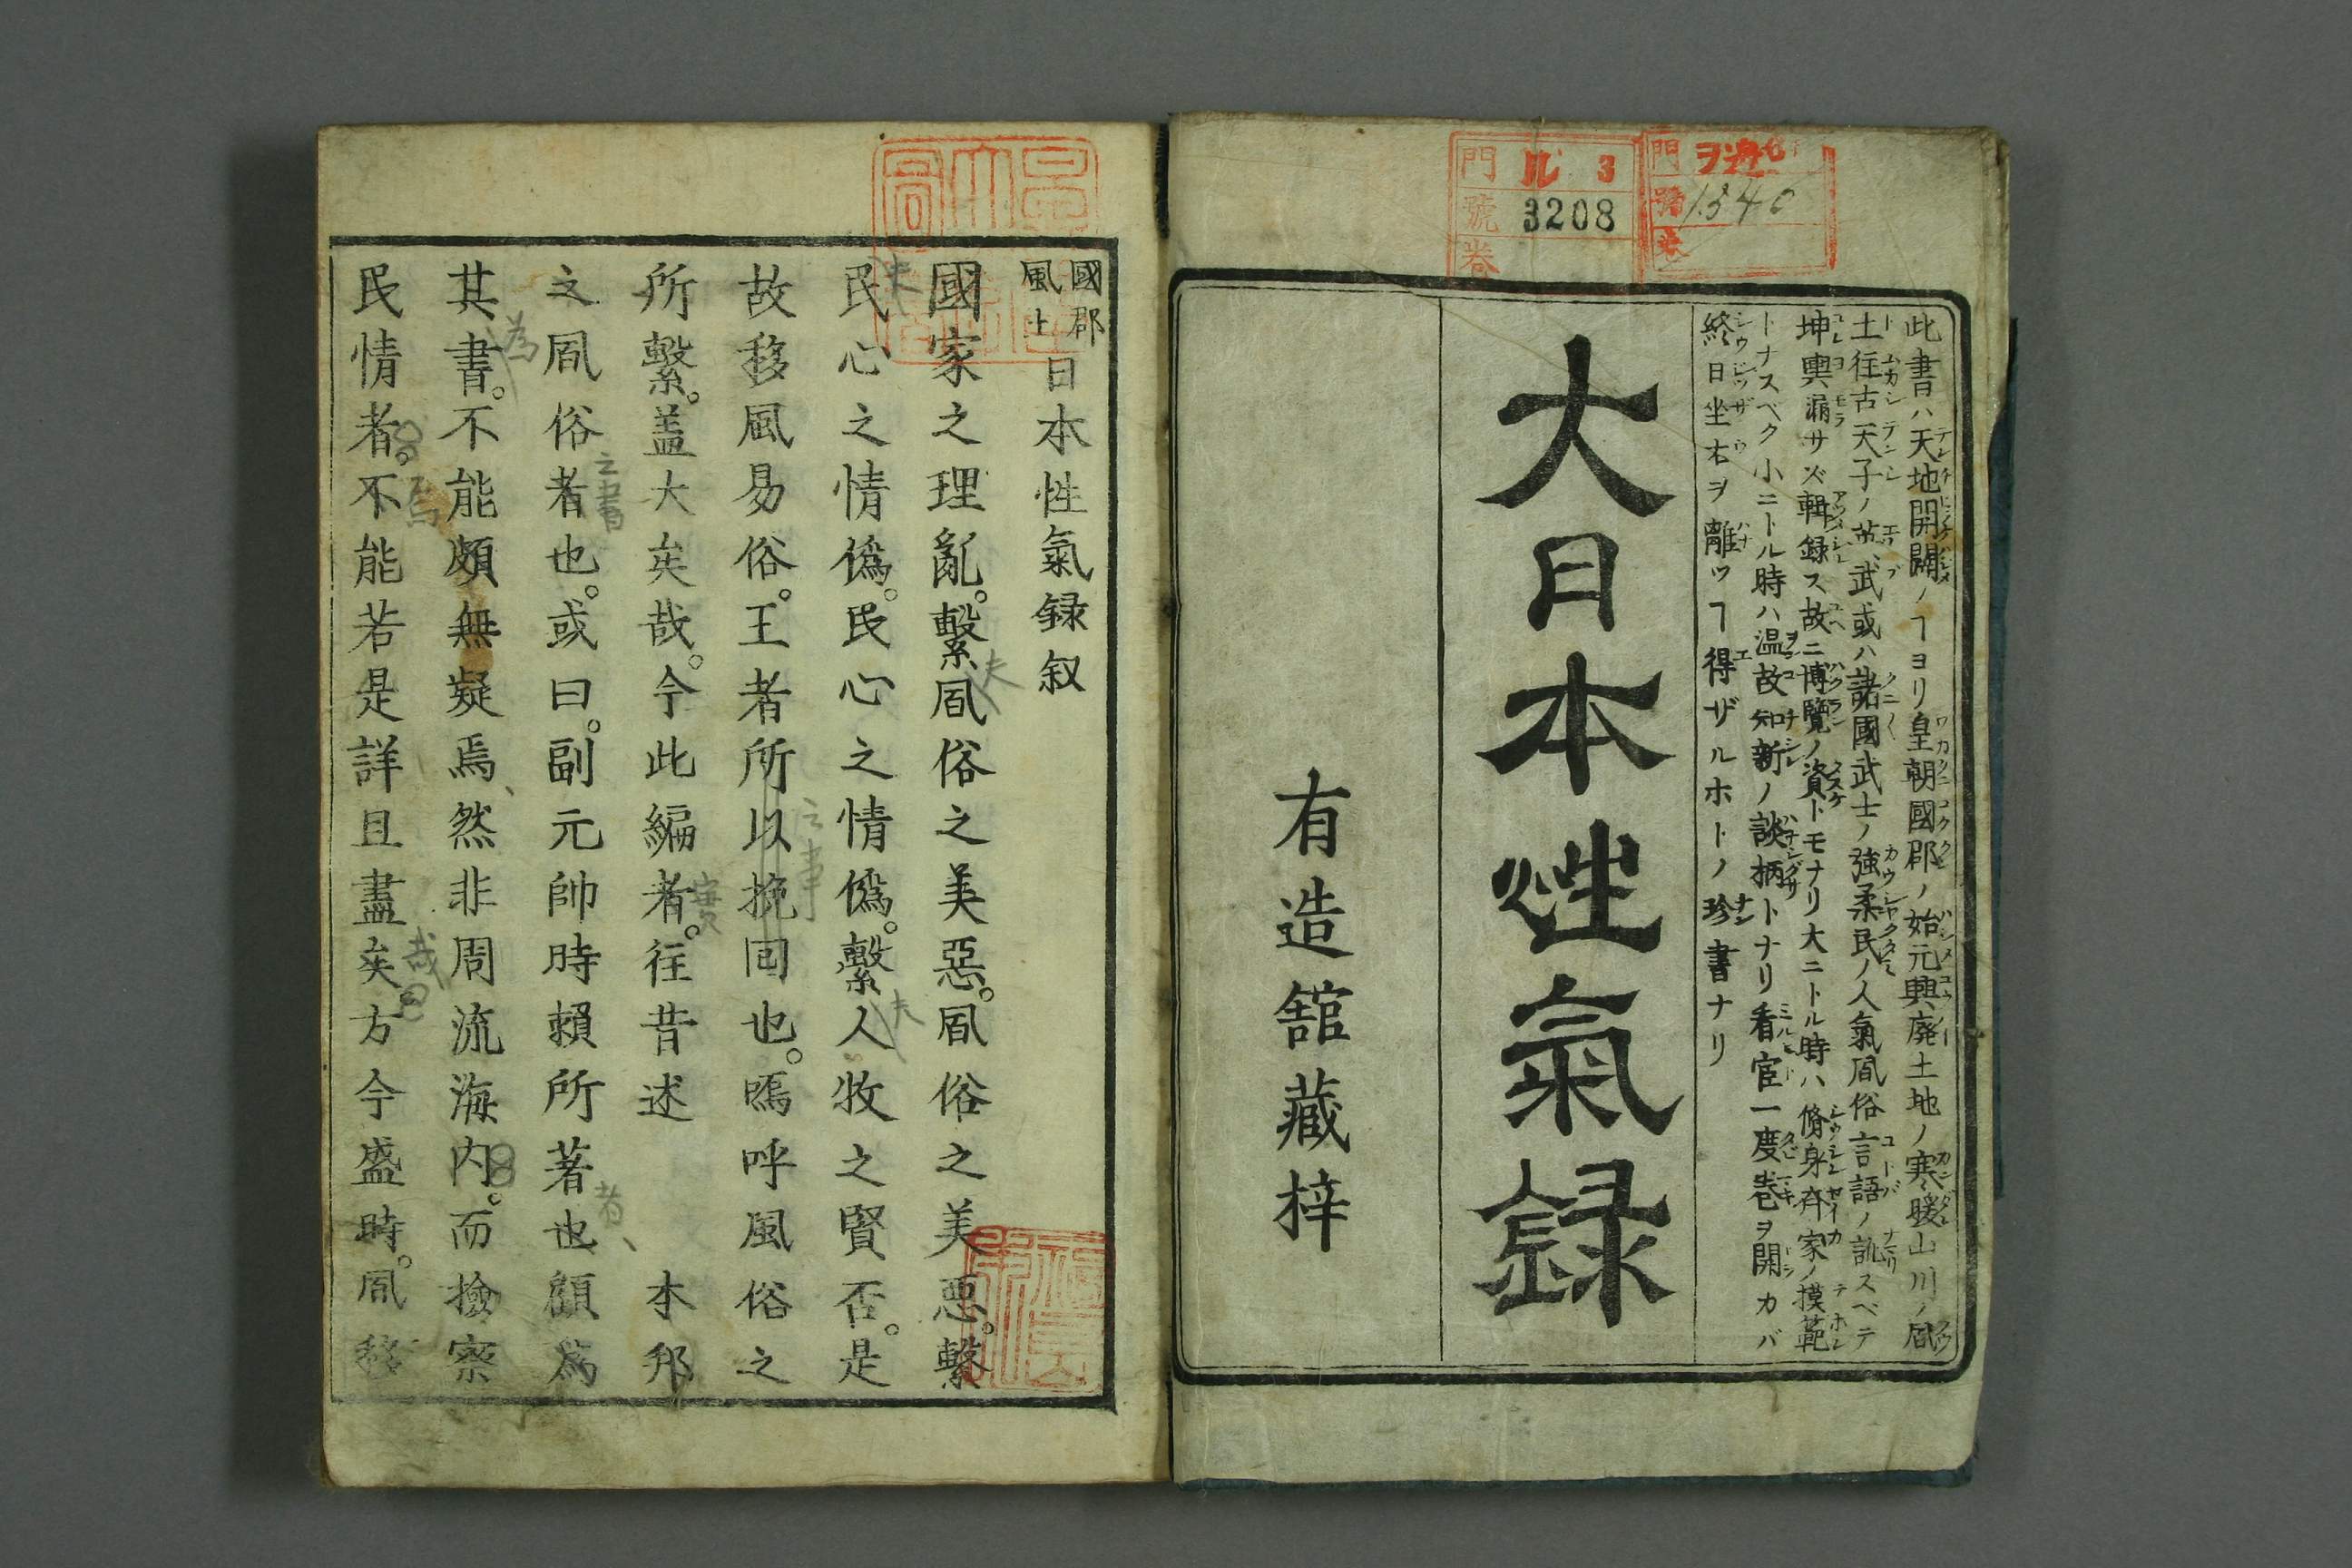 門 ル 3
號 3208
卷
門
號 1340
卷
此書ハ天地開闢ノヿヨリ皇朝國郡ノ始元興廃土地ノ寒暖山川ノ凮
土往古天子ノ英武或ハ諸國武士ノ強柔民ノ人氣凮俗言語ノ訛スベテ
坤輿漏サズ輯録ス故ニ博覽ノ資トモナリ大ニトル時ハ脩身齊家ノ摸範
トナスベク小ニトル時ハ温故知新ノ談柄トナリ看官一度巻ヲ開カバ
終日坐右ヲ離ツヿ得ザルホトノ珍書ナリ
大日本性氣録
有造舘藏梓
國郡
風土
日本性氣録叙
國家之理亂。繫凮俗之美惡。凮俗之美惡。繫
民心之情僞。民心之情僞。繫人牧之賢否。是
故移風易俗。王者所以挽回也。嗚呼風俗之
所繫。盖大矣哉。今此編者。往昔述 本邦
之凮俗者也。或曰。副元帥時頼所著也顧爲
其書。不能頗無疑焉、然非周流海内。而撿察
民情者。不能若是詳且盡矣方今盛時。凮移